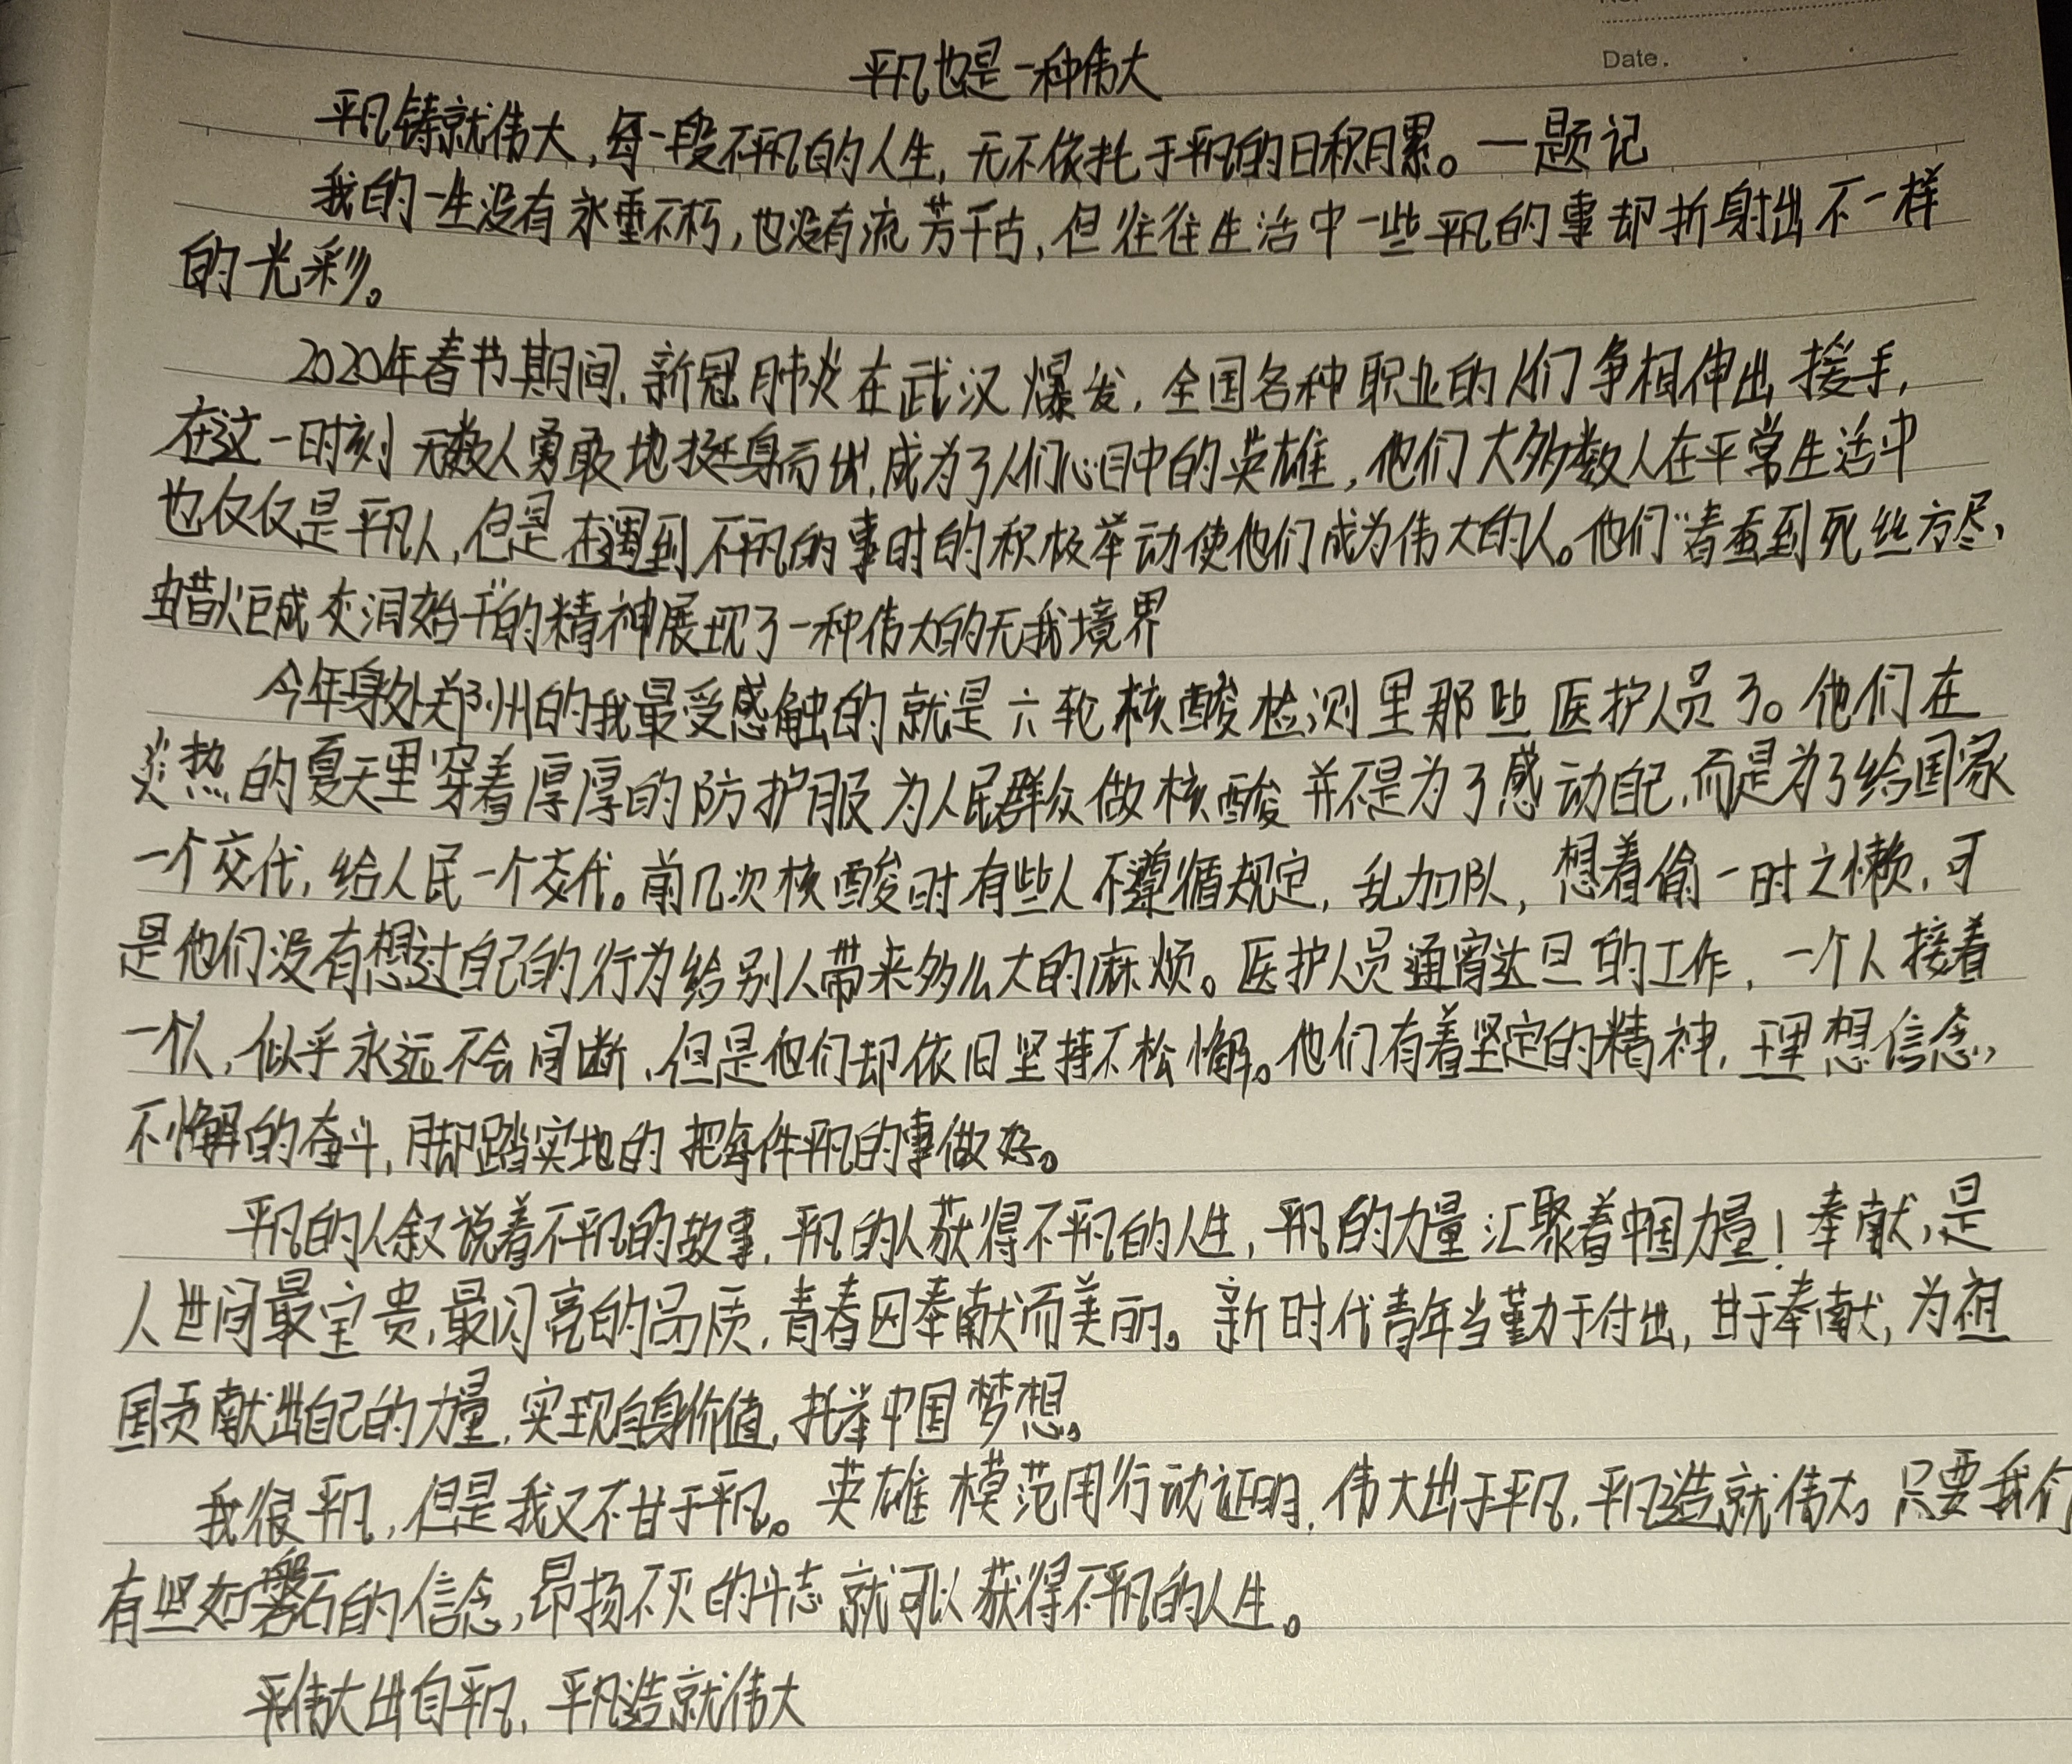 Date.
平凡也是一种伟大
平凡铸就伟大，每一段不平凡的人生，无不依托于平凡的日积月累。一题记
我的一生没有永垂不朽，也没有流芳千古，但往往生活中一些平凡的事却折射出不一样
的光彩。
2020年春节期间，新冠肺炎在武汉爆发，全国各种职业的人们争相伸出援手，
在这一时刻无数人勇敢地挺身而出，成为了人们心目中的英雄，他们大多数人在平常生活中
也仅仅是平凡人，但是在遇到不平凡的事时的积极举动使他们成为伟大的人。他们“春蚕到死丝方尽，
蜡炬成灰泪始干”的精神展现了一种伟大的无我境界
今年身处郑州的我最受感触的就是六轮核酸检测里那些医护人员了。他们在
炎热的夏天里穿着厚厚的防护服为人民群众做核酸并不是为了感动自己，而是为了给国家
一个交代，给人民一个交代。前几次核酸时有些人不遵循规定，乱加队，想着偷一时之懒，可
是他们没有想过自己的行为给别人带来多么大的麻烦。医护人员通宵达旦的工作，一个人接着
一个人，似乎永远不会间断，但是他们却依旧坚持不松懈。他们有着坚定的精神，理想信念，
不懈的奋斗，脚踏实地的把每件平凡的事做好。
平凡的人叙说着不平凡的故事，平凡的人获得不平凡的人生，平凡的力量汇聚着中国力量！奉献，是
人世间最宝贵，最闪亮的品质，青春因奉献而美丽。新时代青年当勤于付出，甘于奉献，为祖
国贡献出自己的力量，实现自身价值，托举中国梦想。
我很平凡，但是我又不甘于平凡。英雄模范用行动证明，伟大出于平凡，平凡造就伟大。只要我们
有坚如磐石的信念，昂扬不灭的斗志就可以获得不平凡的人生。
伟大出自平凡，平凡造就伟大